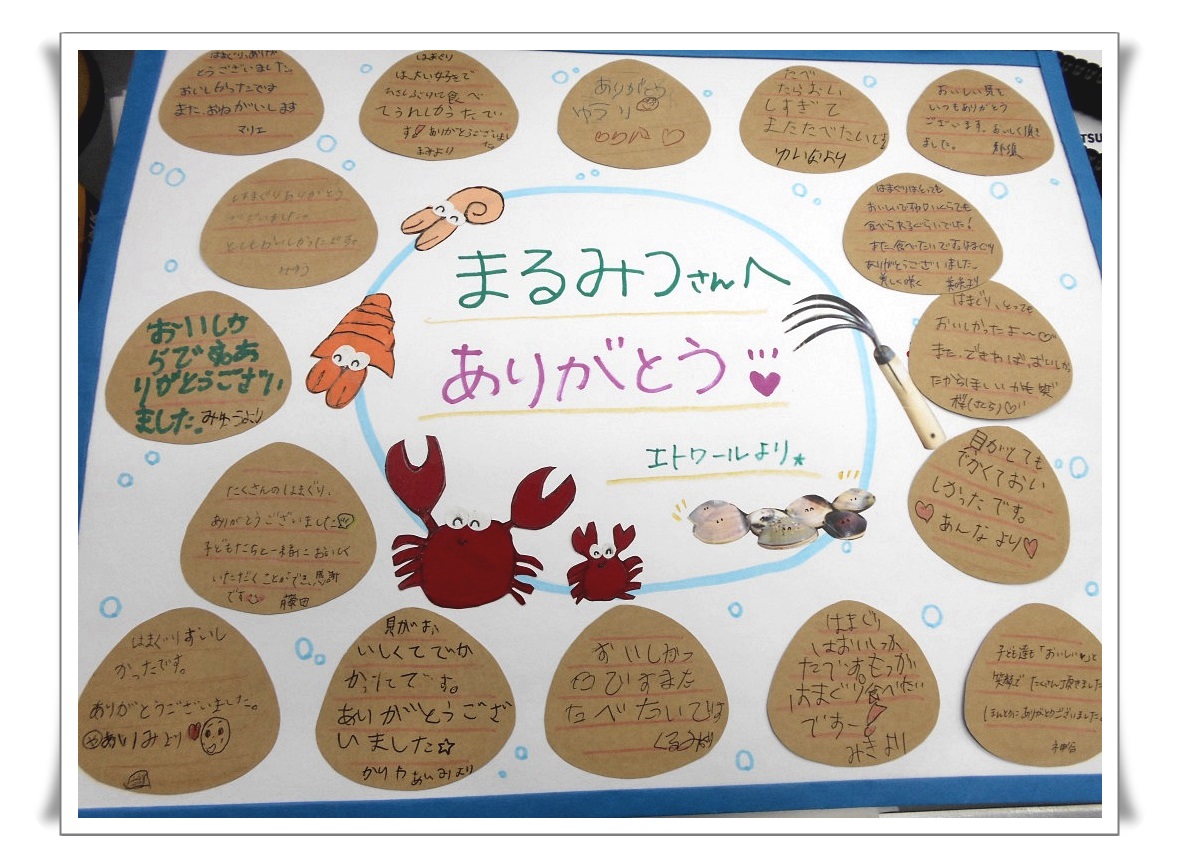 はまぐり、ありが
とうございました。
おいしかったです
また、おねがいします
マリエ
はまぐり
は、大い好きで
ひさしぶりに食べ
てうれしかったで
す！ありがとうござい
まみより
ありがとう
ゆうり
たべ
たらおい
しすぎて
またたべたいです
ゆいなより
おいしい貝を
いつもありがとう
ございます。おいしく頂き
ました。
はまぐりありがとう
ございました。
とてもおいしかったです。
はまぐりはとても
おいしいですね！いくらでも
食べられるぐらいでした！
また食べたいですはまぐり
ありがとうございました。
美しく咲く 美咲より
まるみつさんへ
ありがとう
エトワールより
はまぐり、とっても
おいしかったよ〜♡
また、できればいっぱいしか
たからほしいかも笑
桜(さくら)♡
おいしか
らですねあ
りがとうござい
ました。みゆうより
貝がとても
でかくておい
しかったです。
あんなより♡
たくさんのはまぐり、
ありがとうございました
子どもたちと一緒においしく
いただくことができ、感謝
です 藤田
はまぐりおいし
かったです。
ありがとうございました。
あいみより
貝がお
いしくてでか
かったです。
ありがとうござ
いました☆
かりやあいみより
おいしかっ
たたびすまた
たべたいです
くるみより
はまぐり
はおいしっか
たですもっか
はまぐり食べたい
ですー！
みきより
子ども達も「おいしい♥」と
笑顔でたくさん頂きました
ほんとうにありがとうございました。
神谷